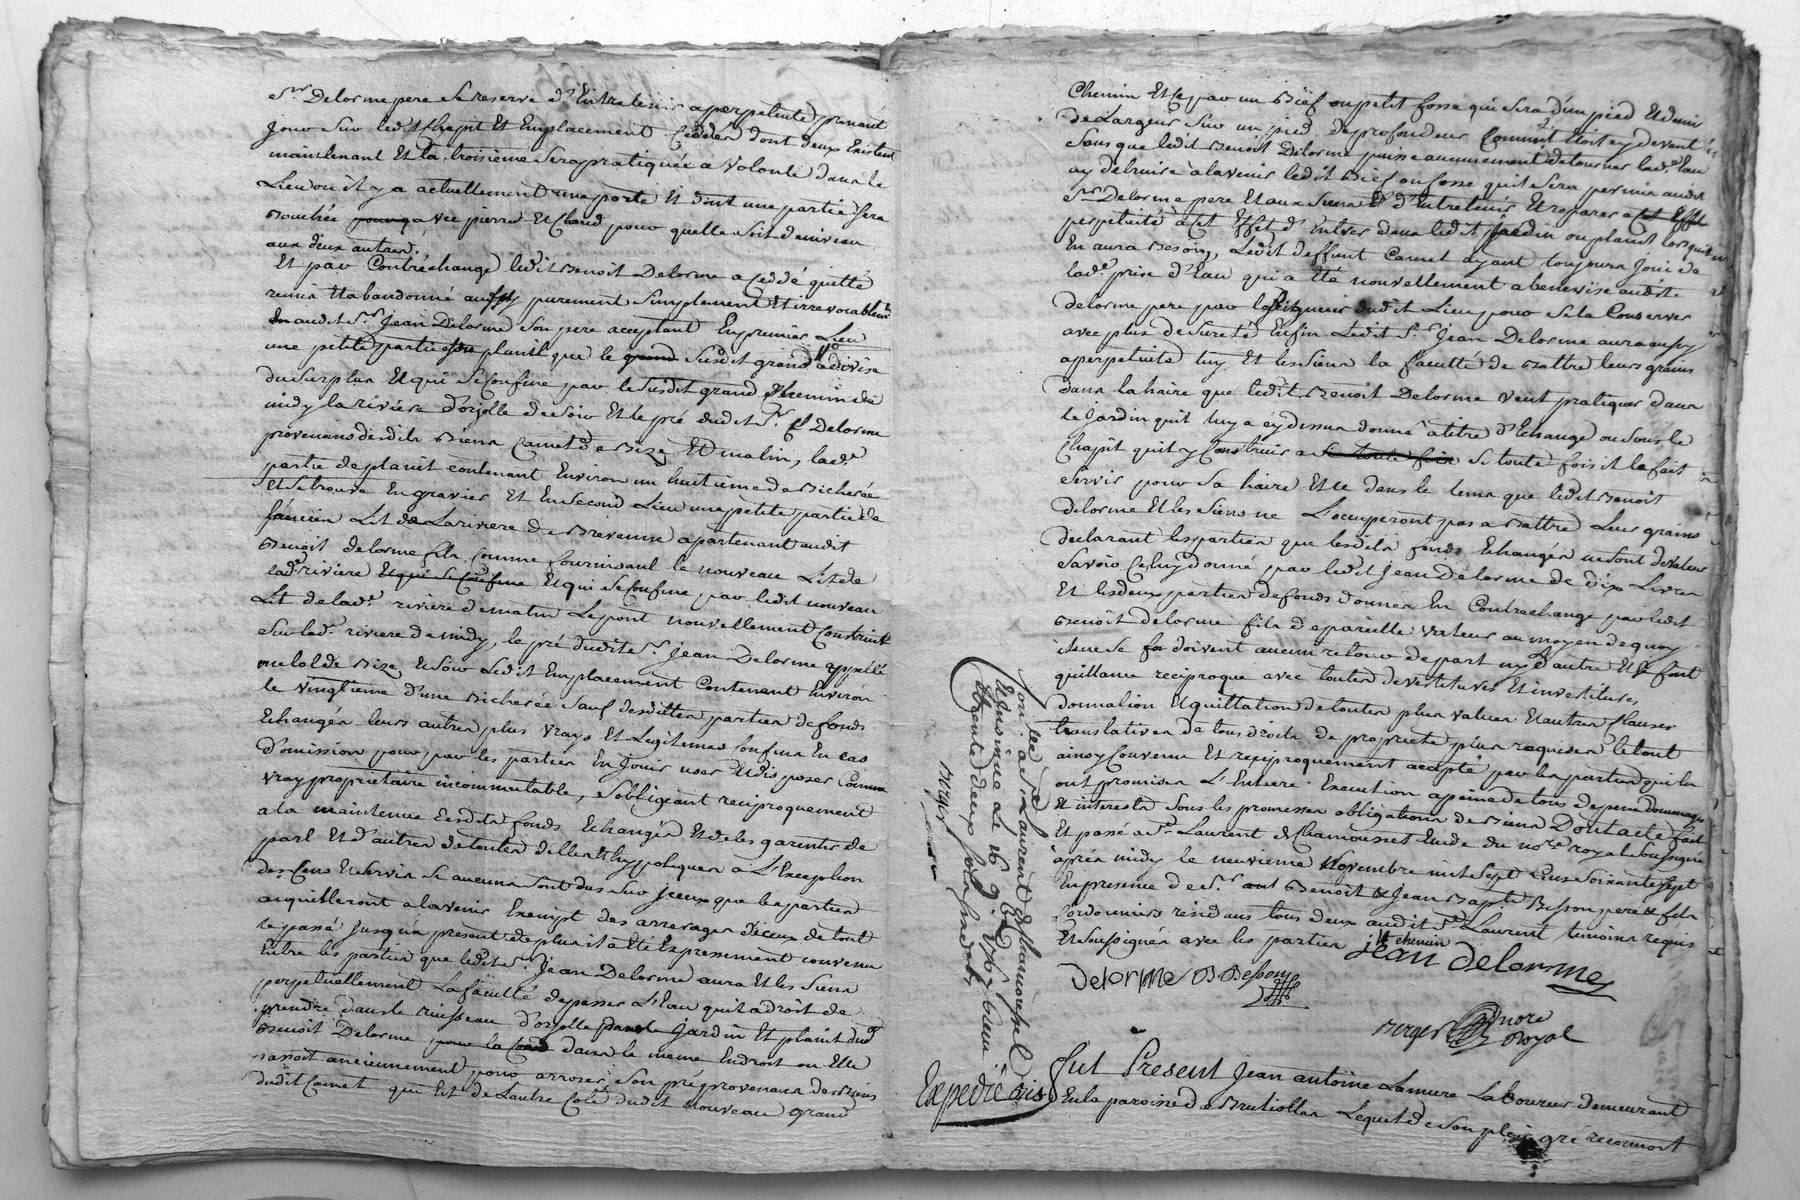 Sr Delorme pere se reserve d'Entretenir a perpetuité prenant
jour sur ledit Chapit Et Emplacement Cedder dont deux Existent
maintenant Et la troisieme sera pratiquée a Volonté dans le
Lieu ou il y a actuellement une porte Et dont une partie sera
Bouchée avec pierre Et Chaud pour quelle soit de niveau
aux deux autres.
Et par Contréchange ledit Benoit Delorme a Ceddé quitté
remis Et abandonné aussy purement simplement Et irrevocablemt
audit Sr Jean Delorme son pere acceptant En premier Lieu
une petite partie planit que le susdit grand divise
du surplus Et qui se Confine par le susdit grand Chemin de
midy la riviere d'orjolle de soir Et le pré dudit Sr Delorme
provenans desdits Biens Camet de Bize Et matin, lade
partie de planit contenant Environ un huitieme de Bicherée
Et se trouve En gravier Et En second Lieu une petite partie de
l'ancien Lit de La riviere de Brevenne apartenant audit
Benoit delorme fils comme fournissant le nouveau Lit de
lade riviere Et qui se Confine Et qui se Confine par ledit nouveau
Lit de lade riviere de matin Le pont nouvellement Construit
sur lade riviere de midy, le pré dudit Sr Jean Delorme appellé
de Bize Et soir Ledit Emplacement Contenant Environ
le vingtieme d'une Bicherée sauf desdittes parties de fonds
Echangés leurs autres plus vrays Et Legitimes Confins En cas
d'omission pour par les parties En Jouir user Et disposer Comme
vray proprietaire incommutable, s'obligeant reciproquement
a la maintenue desdits fonds Echangés Et de les garentir de
part Et d'autres de toutes dettes Et hyppoteques a L'Exception
des Cens Et servis si aucuns sont dus sur jceux que les parties
aquitteront a lavenir Exempt des arrerages d'iceux de tout
le passé jusqu'a present de plus il a été Expressement convenu
Entre les parties que ledit Sr Jean Delorme aura Et les siens
perpetuellement La faculté de passer L'Eau qu'il a droit de
prendre dans le ruisseau d'orjolle dans le jardin Et planit dud
Benoit Delorme dans le meme Endroit ou Elle
passoit anciennement pour arroser son pré provenans des Biens
dudit Camet qui Est de Lautre Coté dudit nouveau grand
Chemin Et Ce par un Bief ou petit fosse qui sera d'un pied Et demi
de Largeur sur un pied de profondeur Comme il Etoit cy devant
sans que ledit Benoit Delorme puisse aucunement detourner lade Eau
ny détruire à l'avenir ledit Bief ou fosse qu'il sera permis audit
Sr Delorme pere Et aux siens d'Entretenir Et reparer
perpetuité a Cet Effet d'Entrer dans ledit jardin ou planit lorsquil
En aura Besoin, Ledit deffunt Camet ayant toujours Joui de
lade prise d'Eau qui a été nouvellement abenevisé audit
delorme pere par le seigneur dudit Lieu pour se la Conserver
avec plus de sureté Enfin Ledit Sr Jean Delorme aura aussy
a perpetuité luy Et les siens la faculté de Battre leurs grains
dans la haire que ledit Benoit Delorme veut pratiquer dans
le Jardin qu'il luy a cy dessus donné a titre d'Echange ou sous le
Chapit qu'il y Construira si toute fois il le fait
servir pour sa haire Et Ce dans le tems que ledit Benoit
delorme Et les siens ne L'occuperont pas a Battre leurs grains
declarant les parties que lesdits fonds Echangés ne sont de Valeur
savoir Celuy donné par ledit Jean Delorme de dix Livres
Et les deux parties de fonds donnés En Contréchange par ledit
Benoit delorme fils de pareille valeur au moyen de quoy
ils ne se doivent aucun retour de part ny d'autre Et se font
quittance reciproque avec toutes devestitures Et investitures,
donnation Et quittation de toutes plus values Et autres Clauses
translatives de tous droits de proprieté plus requises le tout
ainsy Convenu Et reciproquement accepté par les parties qui la
ont promises L'Entiere Execution a peine de tous depens dommages
Et interets sous les promesses obligations de Biens Dontacte fait
Et passé a St Laurent de Chamousset Etude du nore royal soussigné
après midy le neuvieme Novembre mil sept Cens soixante sept
En presence de Sr Benoit & Jean Bapte Besson pere & fils
Cordonniers residans tous deux audit St Laurent temoins requis
Et soussignés avec les parties
Jean delorme
Delorme B. Besson
Berger nore
Royal
Con. lé a St Laurent de Chamousset
Et insinué Le 16 9bre 1767 Reçu
trente deux sols six deniers
Berger
Expedié bis
Fut Present Jean antoine Lamure Laboureur demeurant
En la paroisse de Brutiollas Lequel de son plein gré reconnoit